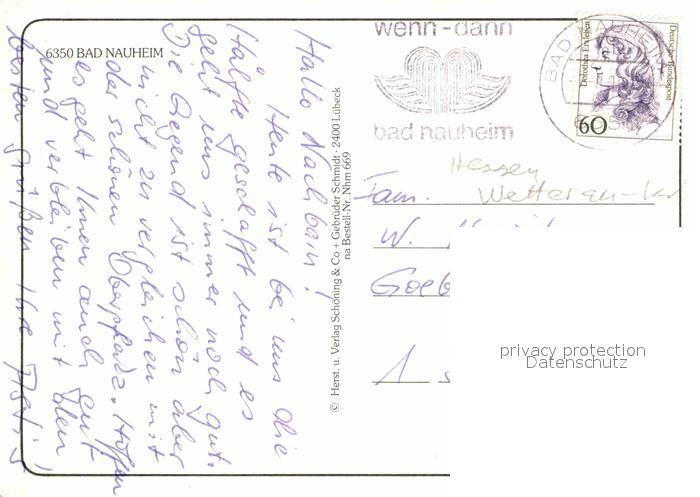 6350 BAD NAUHEIM
Hallo Nachbarin!
Heute ist bei uns die
Hälfte geschafft und es
geht uns immer noch gut.
Die Gegend ist schön aber
nicht zu vergleichen mit
der schönen Oberpfalz. Hoffen
es geht Ihnen auch gut
und verbleiben mit den
besten Grüßen Ihre
© Herst. u. Verlag Schöning & Co + Gebrüder Schmidt · 2400 Lübeck
na Bestell-Nr. Nhm 669
wenn-dann
bad nauheim
BAD NAUHEIM
Dorothea Erxleben
Deutsche Bundespost
60
Hessen
Fam. Wetterau-
W.
Goeb
1
privacy protection
Datenschutz